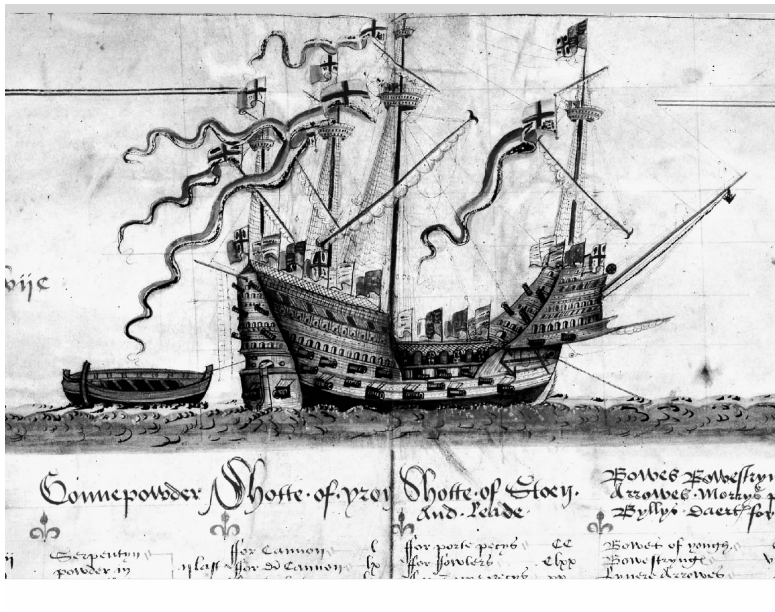 Gonnepowder Shotte of yron Shotte of Stoen
and Leade
Bowes Bowestryn
Arrowes Morrys p
Byllys Daert for
Serpentyn
powder in
ii last
ffor Cannon l
ffor di Cannon lx
ffor porte pecys CC
ffor fowlers Clxx
Bowes of yough
Bowestryng